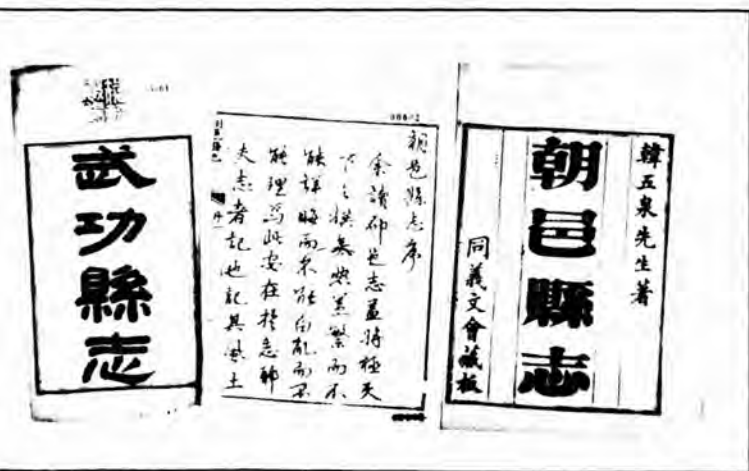 韓五泉先生著
朝邑縣志
同義文會藏板
朝邑縣志序
余讀郡邑志蓋將極天
下之撰矣繁而不
能詳晦而不能白亂而不
能理焉此安在於志耶
夫志者記也記其風土
武功縣志